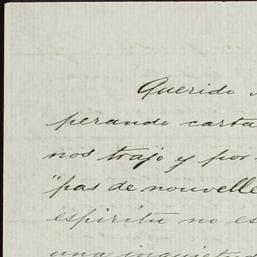 Querido
perando carta
nos trajo y por
"pas de nouvelle
espiritu no es
una inquietud